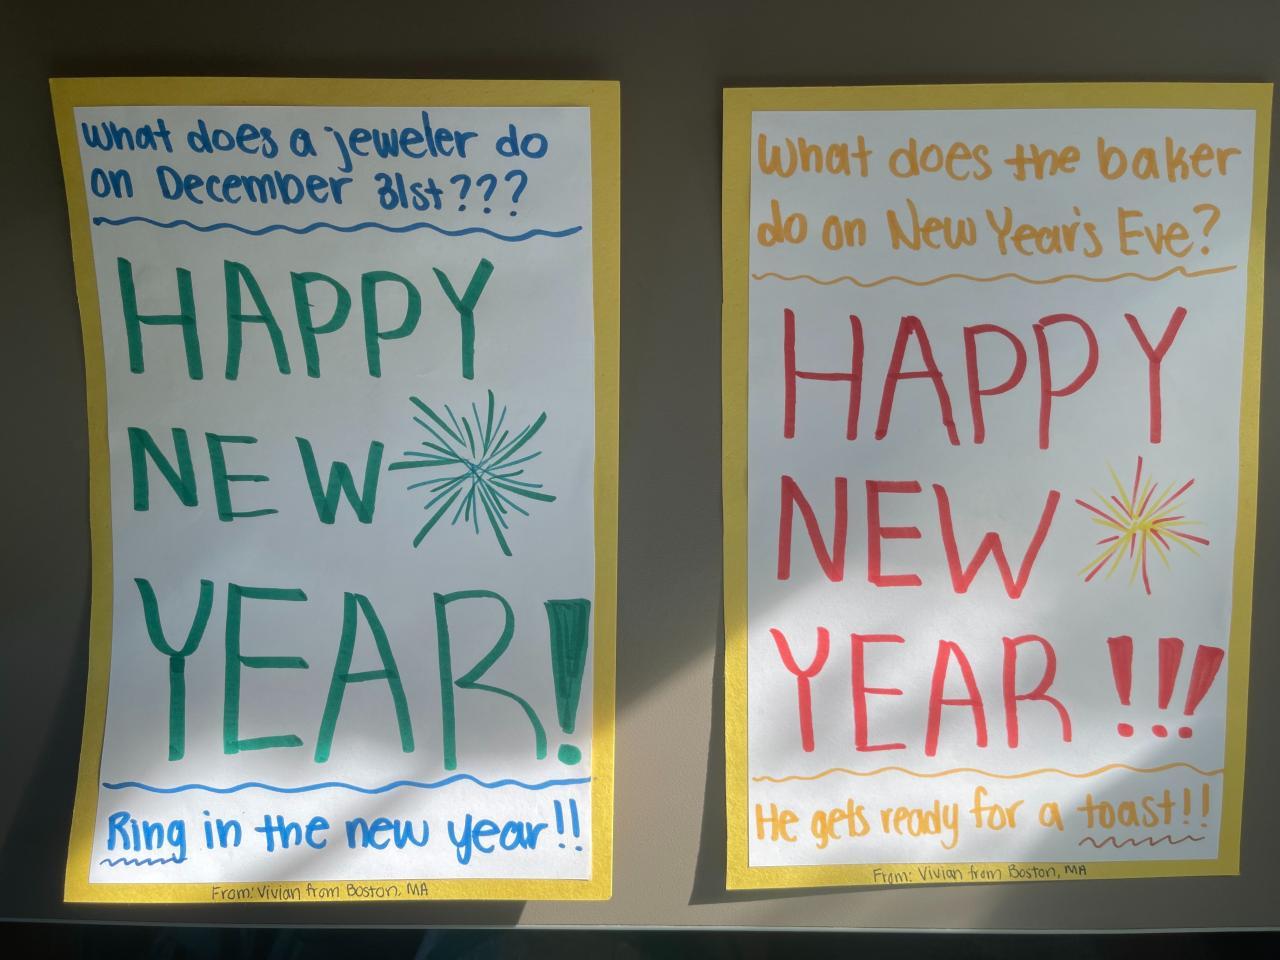 What does a jeweler do
on December 31st???
HAPPY
NEW
YEAR!
Ring in the new year!!
From: Vivian from Boston, MA
What does the baker
do on New Year's Eve?
HAPPY
NEW
YEAR !!!
He gets ready for a toast!!
From: Vivian from Boston, MA